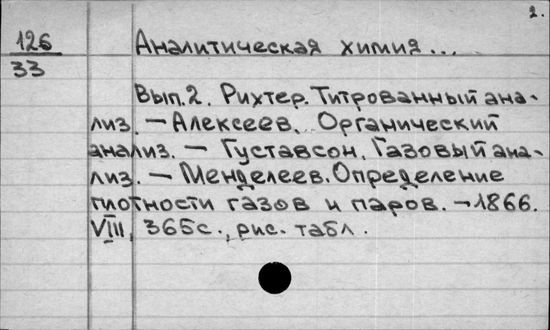 2.
126
33
Аналитическая химия...
Вып.2. Рихтер. Титрованный ана-
лиз. — Алексеев. Органический
анализ. — Густавсон. Газовый ана-
лиз. — Менделеев. Определение
плотности газов и паров. — 1866.
VIII, 365с., рис. табл.